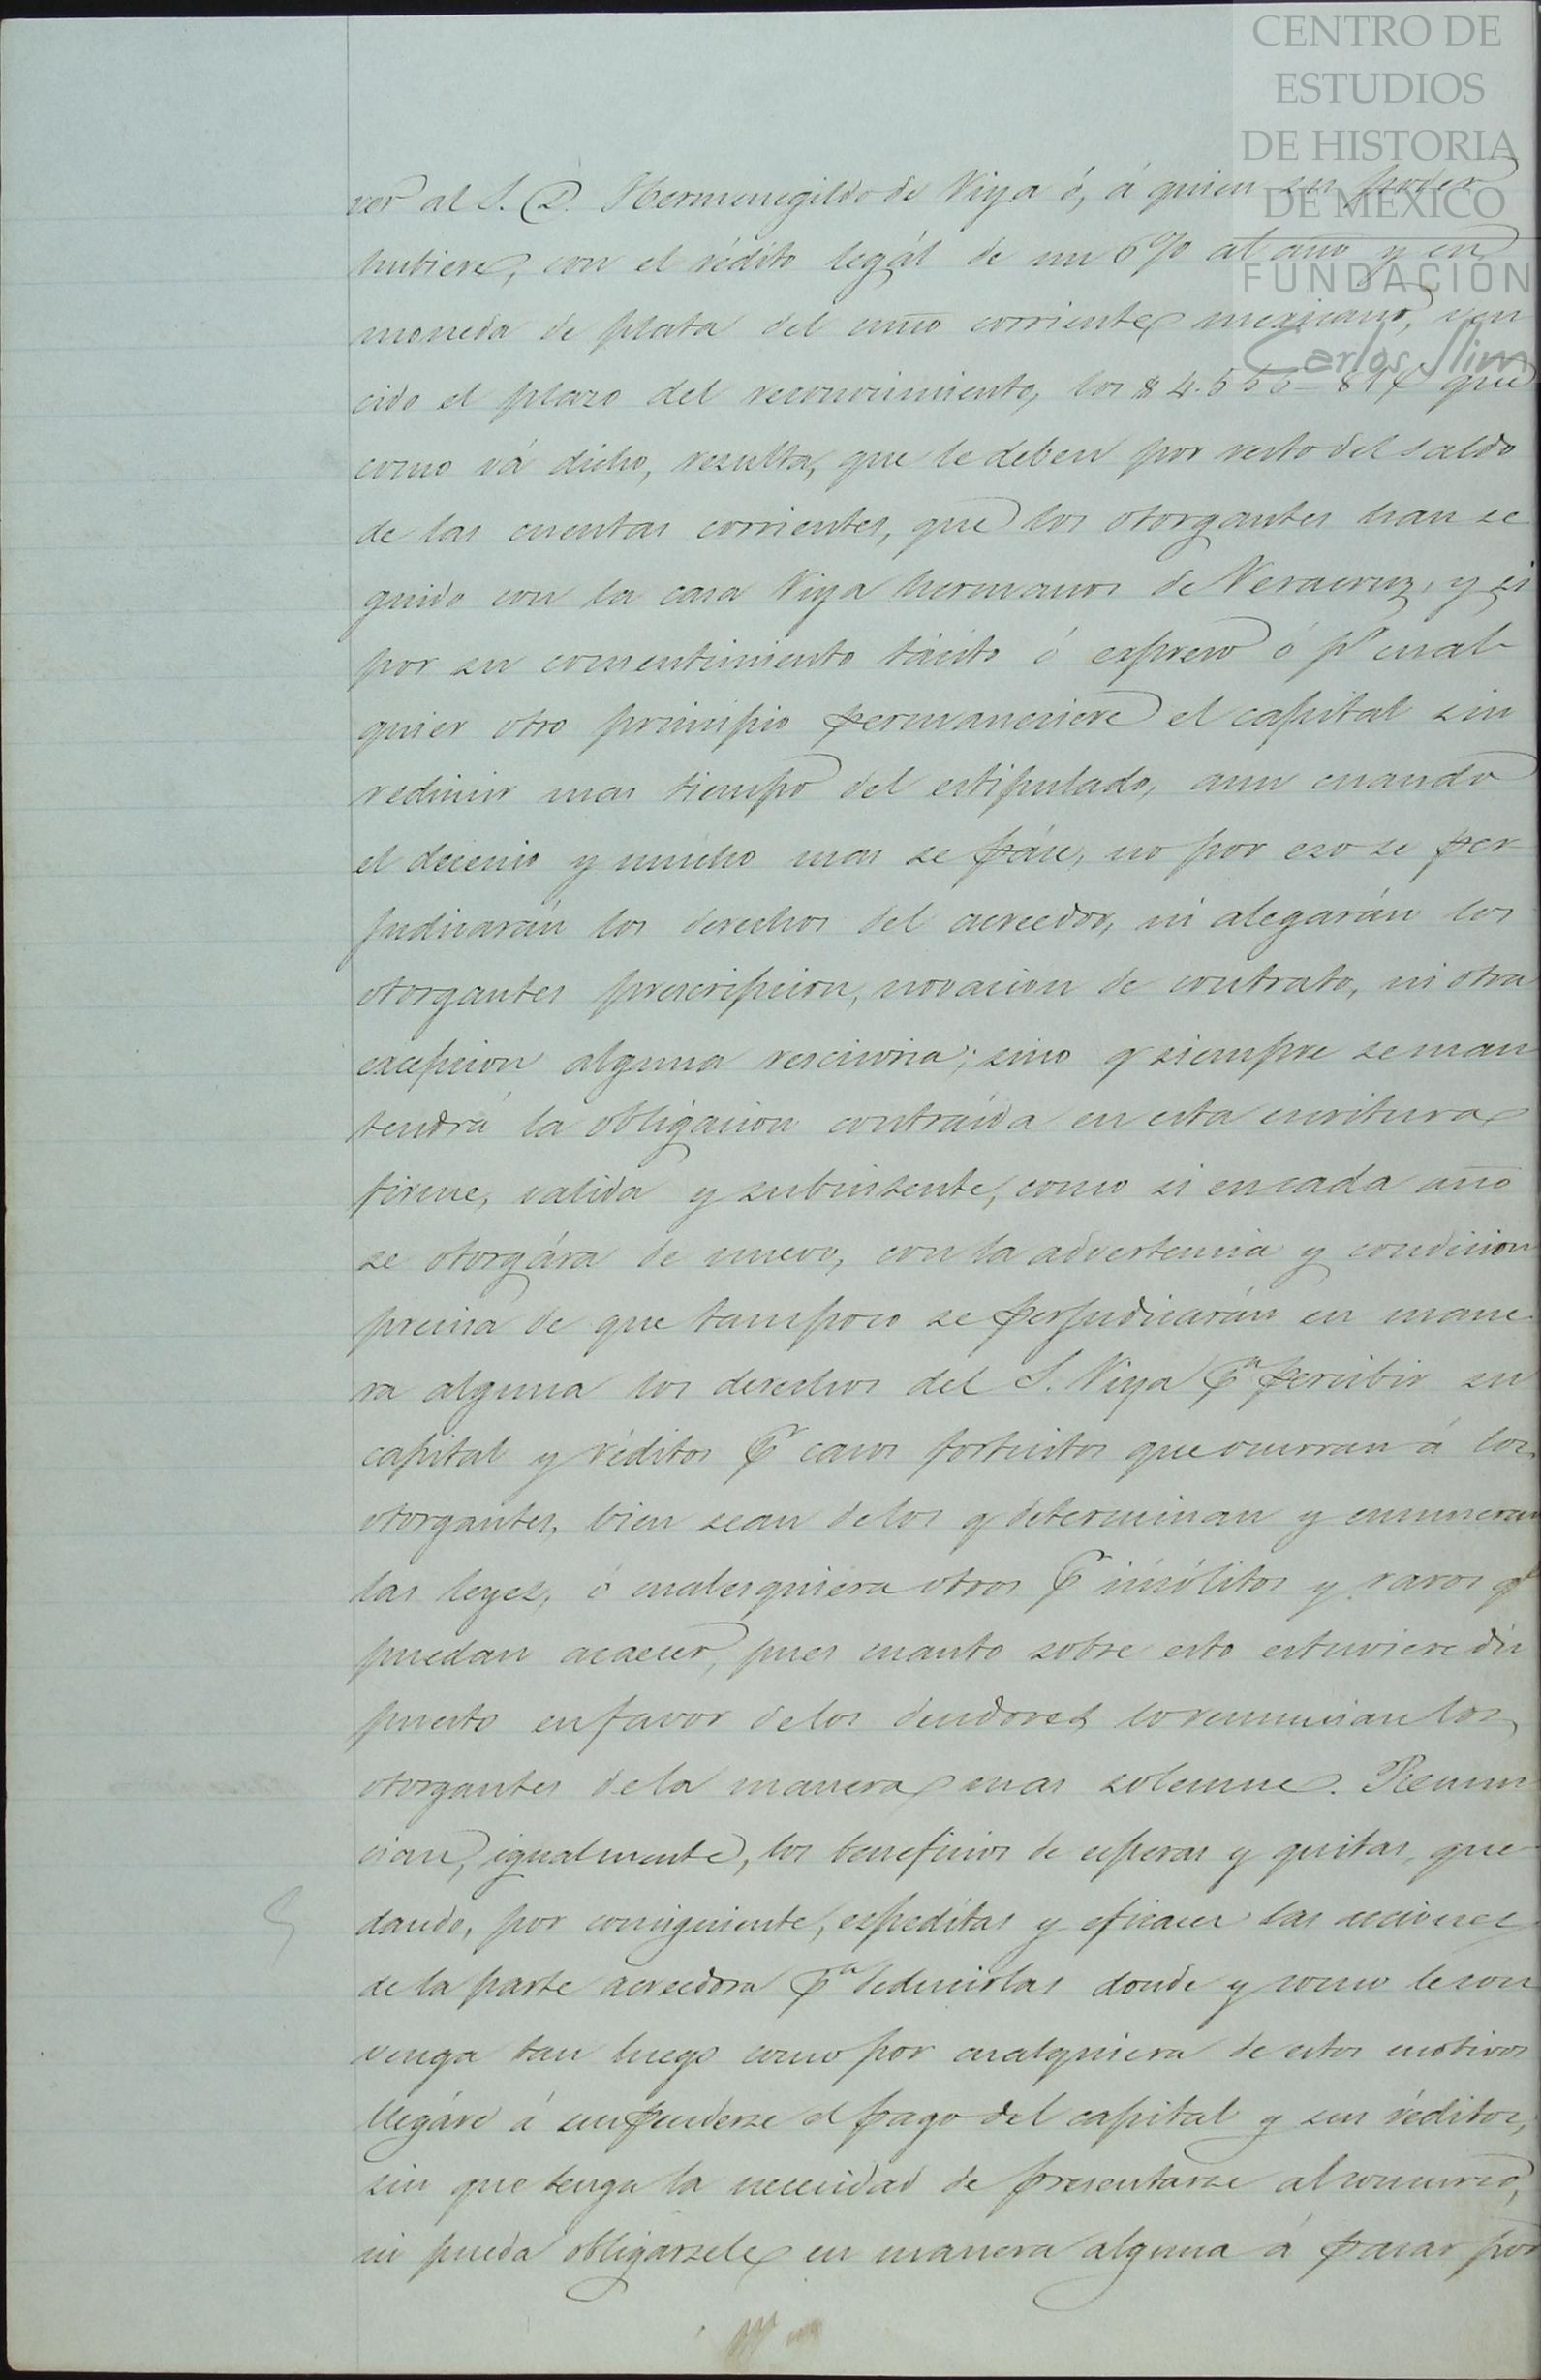 CENTRO DE
ESTUDIOS
DE HISTORIA
DE MEXICO
FUNDACIÓN
Carlos Slim
ver al S. D. Hermenegildo de Viya ó, á quien su poder
hubiere, con el rédito legál de un 6 % al año y en
moneda de plata del cuño corriente mexicano, ven
cido el plazo del reconocimiento, los $ 4.5 que
como vá dicho, resulta, que le deben por resto del saldo
de las cuentas corrientes, que los otorgantes han se
guido con la casa Viya hermanos de Veracruz, y si
por su consentimiento tácito ó expreso ó pr cual
quier otro principio permaneciere el capital sin
redimir mas tiempo del estipulado, aun cuando
el decenio y mucho mas se páse, no por eso se per
judicarán los derechos del acreedor, ni alegarán los
otorgantes prescripcion, novacion de contrato, ni otra
excepcion alguna rescisoria; sino q siempre se man
tendrá la obligacion contraída en esta escritura
firme, valida y subsistente, como si en cada año
se otorgára de nuevo, con la advertencia y condicion
precisa de que tampoco se perjudicarán en mane
ra alguna los derechos del S. Viya pa percibir su
capital y réditos pr casos fortuitos que ocurran á los
otorgantes, bien sean delos q determinan y enumeran
las leyes, ó cualesquiera otros pr insólitos y raros q
puedan acaecer, pues cuanto sobre esto estuviere dis
puesto en favor delos deudores lo renuncian los
otorgantes dela manera mas solemne. Renun
cian, igualmente, los beneficios de esperas y quitas, que
dando, por consiguiente, espeditas y eficaces las acciones
de la parte acreedora pa deducirlas donde y como le con
venga tan luego como por cualquiera de estos motivos
llegáre á suspenderse el pago del capital y sus réditos,
sin que tenga la necesidad de presentarse al concurso,
ni pueda obligársele en manera alguna á pasar por